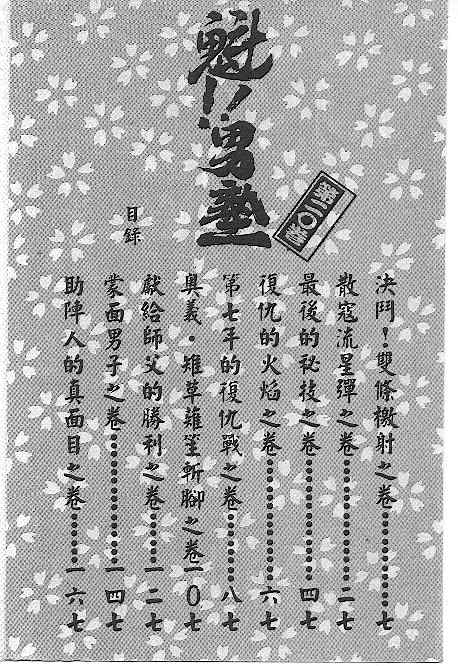 魁!!男塾
第二〇巻
目錄
決鬥!雙條檄射之卷…………七
散寇流星彈之卷…………二七
最後的祕技之卷…………四七
復仇的火焰之卷…………六七
第七年的復仇戰之卷………八七
奧義・雉草薙笙斬腳之卷一〇七
獻給師父的勝利之卷……一二七
蒙面男子之卷…………一四七
助陣人的真面目之卷……一六七